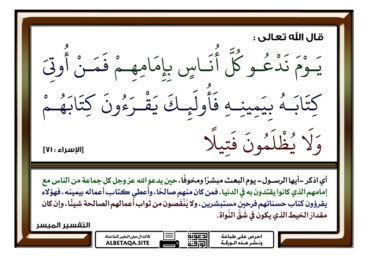 قال الله تعالى :
يَـوْمَ نَدْعُـو كُلَّ أُنَـاسٍ بِإِمَامِهِـمْ فَمَـنْ أُوتِيَ
كِتَابَـهُ بِيَمِينِـهِ فَأُولَـٰئِـكَ يَـقْـرَءُونَ كِتَابَهُـمْ
وَلَا يُظْلَمُونَ فَتِيلًا
[الإسراء : ٧١]
أي اذكر -أيها الرسول- يوم البعث مبشرًا ومخوفًا، حين يدعو الله عز وجل كل جماعة من الناس مع
إمامهم الذي كانوا يقتدون به في الدنيا، فمن كان منهم صالحًا، وأُعطي كتاب أعماله بيمينه، فهؤلاء
يقرؤون كتاب حسناتهم فرحين مستبشرين، ولا يُنْقصون من ثواب أعمالهم الصالحة شيئًا، وإن كان
مقدارَ الخيط الذي يكون في شَقِّ النَّواة.
التفسير الميسر
احرص على طباعة
ونشر هذه الورقة
ALBETAQA.SITE